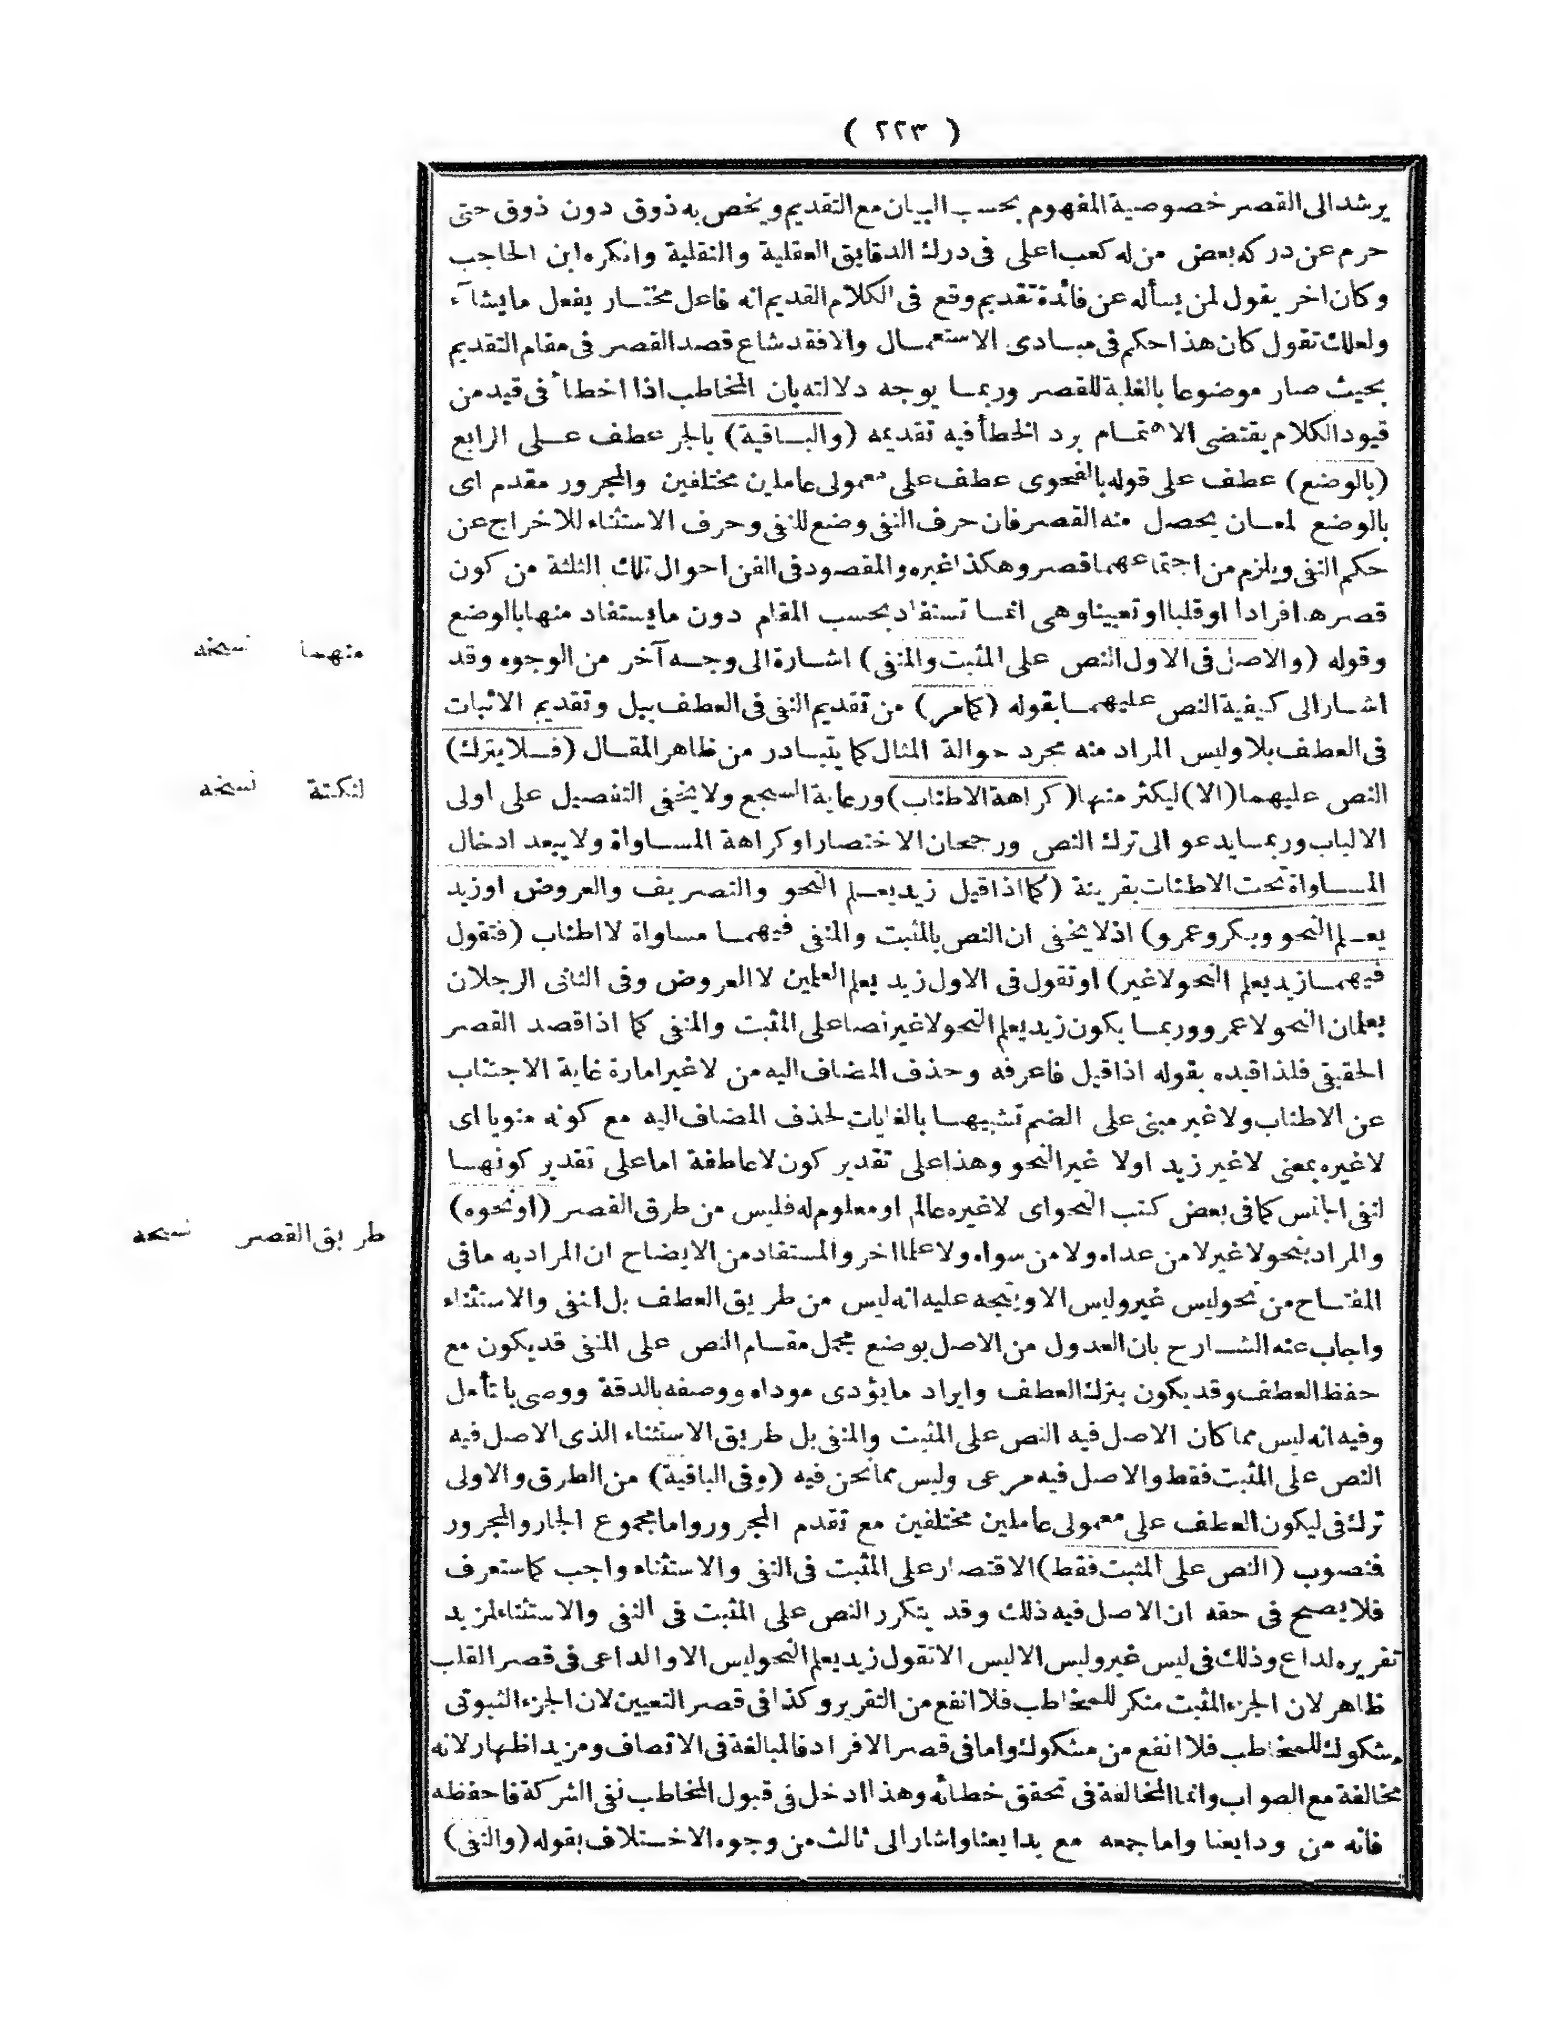 ( ٢٢٣ )
يرشد الى القصر خصوصية المفهوم بحسب البيان مع التقديم ويخص به ذوق دون ذوق حتى
حرم عن دركه بعض من له كعب اعلى فى درك الدقايق العقلية والنقلية وانكره ابن الحاجب
وكان اخر يقول لمن يسأله عن فائدة تقديم وقع فى الكلام القديم انه فاعل مختار يفعل ما يشآء
ولعلك تقول كان هذا حكم فى مبادى الاستعمال والا فقد شاع قصد القصر فى مقام التقديم
بحيث صار موضوعا بالغلبة للقصر وربما يوجه دلالته بان المخاطب اذا اخطأ فى قيد من
قيود الكلام يقتضى الاهتمام برد الخطأ فيه تقديمه (والباقية) بالجر عطف على الرابع
(بالوضع) عطف على قوله بالفحوى عطف على معمولى عاملين مختلفين والمجرور مقدم اى
بالوضع لمعان يحصل منه القصر فان حرف النفى وضع للنفى وحرف الاستثناء للاخراج عن
حكم النفى ويلزم من اجتماعهما قصر وهكذا غيره والمقصود فى الفن احوال تلك الثلثة من كون
قصرها افرادا او قلبا او تعيينا وهى انما تستفاد بحسب المقام دون ما يستفاد منها بالوضع
وقوله (والاصل فى الاول النص على المثبت والمنفى) اشارة الى وجه آخر من الوجوه وقد
اشار الى كيفية النص عليهما بقوله (كما مر) من تقديم النفى فى العطف ببل وتقديم الاثبات
فى العطف بلا وليس المراد منه مجرد حوالة المثال كما يتبادر من ظاهر المقال (فلا يترك)
النص عليهما (الا) ليكثر منها (كراهة الاطناب) ورعاية السجع ولا يخفى التفصيل على اولى
الالباب وربما يدعو الى ترك النص ورجحان الاختصار او كراهة المساواة ولا يبعد ادخال
المساواة تحت الاطناب بقرينة (كما اذا قيل زيد يعلم النحو والتصريف والعروض او زيد
يعلم النحو وبكر وعمرو) اذ لا يخفى ان النص بالمثبت والمنفى فيهما مساواة لا اطناب (فتقول
فيهما زيد يعلم النحو لا غير) او تقول فى الاول زيد يعلم العلمين لا العروض وفى الثانى الرجلان
يعلمان النحو لا عمرو وربما يكون زيد يعلم النحو لا غير نصا على المثبت والمنفى كما اذا قصد القصر
الحقيقى فلذا قيده بقوله اذا قيل فاعرفه وحذف المضاف اليه من لا غير امارة غاية الاجتناب
عن الاطناب ولا غير مبنى على الضم تشبيها بالغايات لحذف المضاف اليه مع كونه منويا اى
لا غيره بمعنى لا غير زيد او لا غير النحو وهذا على تقدير كون لا عاطفة اما على تقدير كونها
لنفى الجنس كما فى بعض كتب النحو اى لا غيره عالم او معلوم له فليس من طرق القصر (او نحوه)
والمراد بنحو لا غير لا من عداه ولا من سواه ولا علما اخر والمستفاد من الايضاح ان المراد به ما فى
المفتاح من نحو ليس غير وليس الا ويتجه عليه انه ليس من طريق العطف بل النفى والاستثناء
واجاب عنه الشارح بان العدول من الاصل بوضع مجمل مقام النص على المنفى قد يكون مع
حفظ العطف وقد يكون بترك العطف وايراد ما يؤدى موداه ووصفه بالدقة ووصى با تأمل
وفيه انه ليس مما كان الاصل فيه النص على المثبت والمنفى بل طريق الاستثناء الذى الاصل فيه
النص على المثبت فقط والاصل فيه مرعى وليس مما نحن فيه (وفى الباقية) من الطرق والاولى
ترك فى ليكون العطف على معمولى عاملين مختلفين مع تقدم المجرور واما مجموع الجار والمجرور
فنصوب (النص على المثبت فقط) الاقتصار على المثبت فى النفى والاستثناء واجب كما ستعرف
فلا يصح فى حقه ان الاصل فيه ذلك وقد يتكرر النص على المثبت فى النفى والاستثناء لمزيد
تقريره لداع وذلك فى ليس غير وليس الا ليس الا تقول زيد يعلم النحو ليس الا والداعى فى قصر القلب
ظاهر لان الجزء المثبت منكر للمخاطب فلا انفع من التقرير وكذا فى قصر التعيين لان الجزء الثبوتى
مشكوك للمخاطب فلا انفع من مشكوك واما فى قصر الافراد فالمبالغة فى الاتصاف ومزيد اظهار لانه
مخالفة مع الصواب وانما المخالفة فى تحقق خطائه وهذا ادخل فى قبول المخاطب نفى الشركة فاحفظه
فانه من ودايعنا واما جمعه مع بدايعنا واشار الى ثالث من وجوه الاختلاف بقوله (والنفى)
منهما نسخه
لنكتة نسخه
طريق القصر نسخه